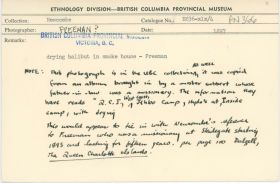 ETHNOLOGY DIVISION—BRITISH COLUMBIA PROVINCIAL MUSEUM
Collection: Newcombe Catalogue No.:
FREEMAN? Date:
BRITISH COLUMBIA PROVINCIAL MUSEUM
Remarks:
VICTORIA, B. C.
drying halibut in smoke house - Freeman
as well
NOTE: This photograph is in the UBC collections, it was copied
from an album brought in by a
father-in-law was a missionary. The information they
have reads "Q.C.I.,
camp, with drying
This would appear to tie in with Newcombe's reference
to Freeman who was a missionary at Skidegate starting
1893 and lasting for fifteen years. per page 120 Dalzell,
The Queen Charlotte Islands.